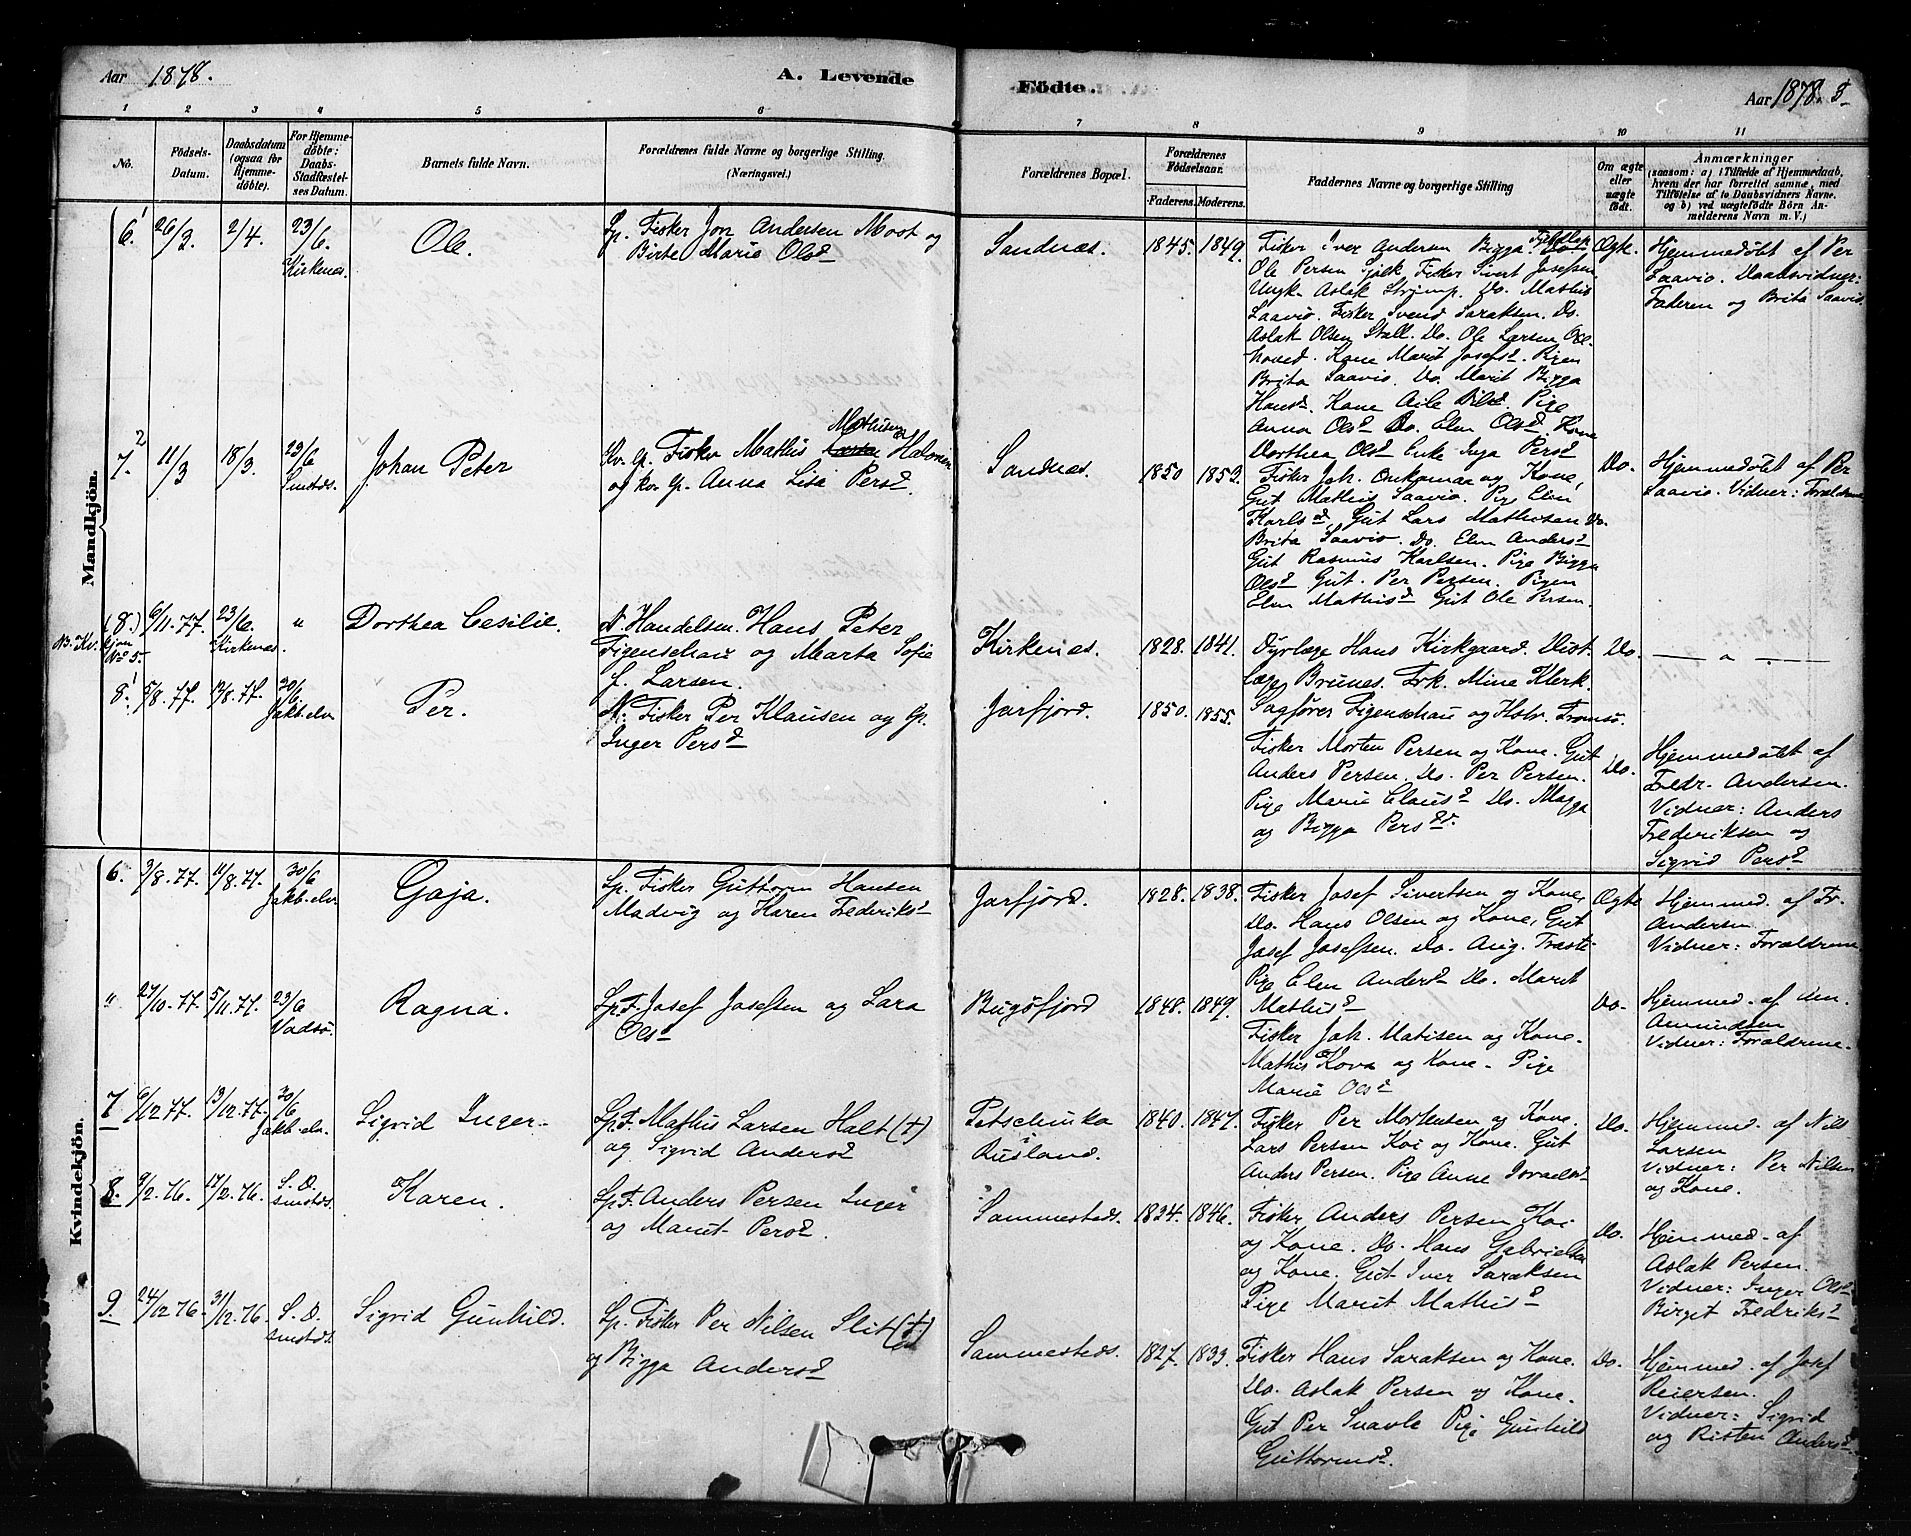 Aar 1878.
A. Levende
Fødte.
Aar 1878.
1 2 3 4 5 6
7 8 9 10 11
No.
Fødsels-
Datum.
Daabsdatum
(ogsaa for
Hjemme-
døbte).
For Hjemme-
døbte:
Daabs-
Stadfæstel-
ses Datum.
Barnets fulde Navn.
Forældrenes fulde Navne og borgerlige Stilling.
(Næringsvei.)
Forældrenes Bopæl.
Forældrenes
Fødselsaar.
Faderens. Moderens.
Faddernes Navne og borgerlige Stilling
Om ægte
eller
uægte
født.
Anmærkninger
(saasom: a) i Tilfælde af Hjemmedaab,
hvem der har forrettet samme, med
Tilføielse af to Daabsvidners Navne,
og b) ved uægtefødte Børn An-
melderens Navn m. V.)
Mandkjøn.
6. 1 26/3. 2/4. 23/6.
Kirkenes.
Ole.
Lp. Fisker Jon Andersen Moot og
Birte Marie Olsd
Sandnæs. 1845. 1849.
Fisker Iver Andersen Bigga.
Ole Persen Fisker Sivert Josefsen
Ungk. Aslak Strimp. Do. Mathis
Saavio. Fisker Svend Saraksen. Do.
Aslak Olsen Stall. Do. Ole Larsen Oxe-
hoved. Kone Marit Josefsd. Pigen
Brita Saavio. Do. Marit Bigga
Hansd. Kone Aile Pige
Anna Olsd Do. Elen Olsd Kone
Dorthea Olsd Enke Inga Persd
Ægte.
Hjemmedøbt af Per
Saavio. Daabsvidner:
Faderen og Brita Saavio
7. 2 11/3 18/3. 23/6
Smstds.
Johan Peter
Kv. gp. Fisker Mathis Mathisen Halonen
og kv. gp. Anna Lisa Persd.
Sandnæs. 1850 1853.
Fisker Joh. Onkamaa og Kone,
Gut Mathis Saavio. Pige Elen
Karlsd, Gut Lars Mathisen Do.
Brita Saavio. Do. Elen Andersd
Gut Rasmus Karlsen. Pige Bigga
Olsd Gut. Per Persen. Pigen
Elen Mathisd Gut Ole Persen.
Do.
Hjemmedøbt af Per
Saavio. Vidner: Forældrene
(8.) 6/11.77. 23/6. "
NB. Kv. kjøn No 5. Kirkenes.
Dorthea Cesilie.
N. Handelsm. Hans Peter
Figenschau og Marta Sofie
f. Larsen.
Kirkenæs. 1828. 1841.
Dyrlæge Hans Kirkgaard. Dist.
Læge Brunes. Frk. Mine Klerk.
Sagfører Figenschau og Hstr. Tromsø.
Do.
— " —
8. 1 5/8.77. 12/8.77. 30/6
Jakb.elv.
Per.
N. Fisker Per Klausen og Lp.
Inger Persd
Jarfjord. 1850. 1855.
Fisker Morten Persen og Kone. Gut
Anders Persen. Do. Per Persen.
Pige Marie Clausd Do. Magga
og Bigga Persdr.
Do.
Hjemmedøbt af
Fredr. Andersen.
Vidner: Anders
Frederiksen og
Sigrid Persd
Kvindekjøn.
6. 3/8.77. 11/8.77. 30/6
Jakb.elv.
Gaja.
Lp. Fisker Guttorm Hansen
Madvig og Karen Frederiksd
Jarfjord. 1828. 1838.
Fisker Josef Sivertsen og Kone,
Do. Hans Olsen og Kone, Gut
Josef Josefsen. Do. Aug. Traste-
Pige Elen Andersd Do. Marit
Mathisd
Ægte
Hjemmed. af Fr.
Andersen.
Vidner: Forældrene
" 27/10.77 5/11.77. 23/6
Vadsø.
Ragna.
Lp. F. Josef Josefsen og Lara
Olsd
Bugøfjord 1848. 1849.
Fisker Joh. Matisen og Kone.
Mathis Kova og Kone. Pige
Marie Olsd
Do.
Hjemmed. af
Amundsen
Vidner: Forældrene.
7 6/12.77. 13/12.77. 30/6
Jakb.elv.
Sigrid Inger.
Lp. F. Mathis Larsen Halt (†)
og Sigrid Andersd
Petschinka
i
Rusland. 1840. 1847.
Fisker Per Mortensen og Kone.
Lars Persen Koi og Kone. Gut
Anders Persen. Pige Anne Israelsd
Do.
Hjemmed. af Nils
Larsen
Vidner: Per Nilsen
og Kone.
8. 9/2.76. 17/2.76. S. D.
smstds.
Karen.
Lp. F. Anders Persen Inger
og Marit Persd.
Sammesteds. 1834. 1846.
Fisker Anders Persen Koi
og Kone. Do. Hans Gabrielsen
og Kone. Gut Iver Saraksen
Pige Marit Mathisd
Do.
Hjemmed. af
Aslak Persen.
Vidner: Inger Olsd
Birget Fredriksd
9. 24/12.76. 31/12.76. S. D.
smstds.
Sigrid Gunhild.
Lp. Fisker Per Nilsen Slit (†)
og Bigga Andersd
Sammesteds. 1827. 1833.
Fisker Hans Saraksen og Kone.
Do. Aslak Persen og Kone.
Gut Per Snavle Pige Gunhild
Guttormsd.
Do.
Hjemmed. af Josef
Reiersen.
Vidner: Sigrid
og Risten Andersd